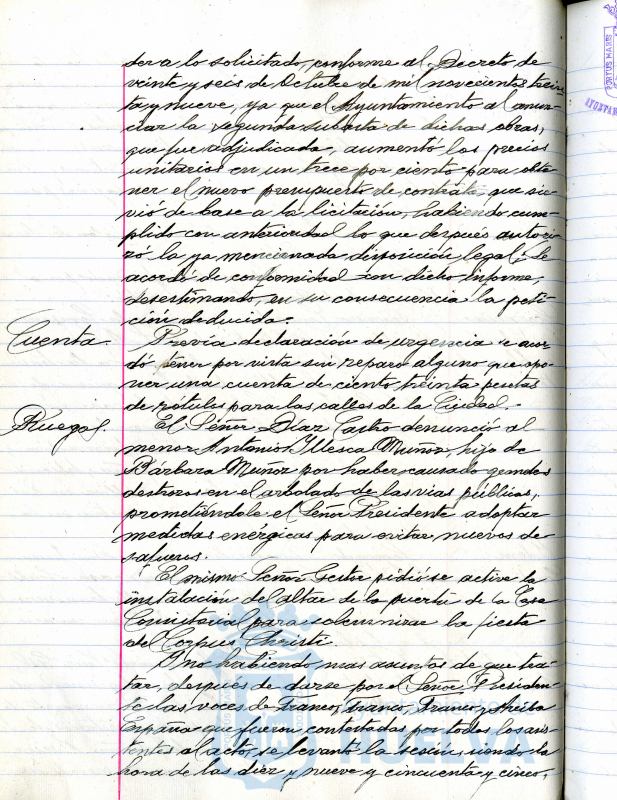 der a lo solicitado, conforme al Decreto de
veinte y seis de Octubre de mil novecientos trein
ta y nueve, ya que el Ayuntamiento al anun
ciar la segunda subasta de dichas obras,
que fue adjudicada, aumentó los precios
unitarios en un trece por ciento para obte
ner el nuevo presupuesto de contrata, que sir
vió de base a la licitación, habiendo cum
plido con anterioridad lo que después autori
zó la ya mencionada disposición legal; se
acordó de conformidad con dicho informe,
desestimando, en su consecuencia la peti
ción deducida.
Cuenta. Previa declaración de urgencia se acor
dó tener por vista sin reparo alguno que opo
ner una cuenta de ciento treinta pesetas
de rótulos para las calles de la Ciudad.
Ruegos. El Señor Díaz Castro denunció al
menor Antonio Illesca Muñoz, hijo de
Bárbara Muñoz por haber causado grandes
destrozos en el arbolado de las vías públicas,
prometiéndole el Señor Presidente adoptar
medidas enérgicas para evitar nuevos de
safueros.
El mismo Señor Gestor pidió se active la
instalación del altar de la puerta de la Casa
Consistorial para solemnizar la fiesta
del Corpus Christi.
Y no habiendo mas asuntos de que tra
tar, después de darse por el Señor Presiden
te las voces de Franco, Franco, Franco y Arriba
España que fueron contestadas por todos los asis
tentes al acto, se levantó la sesión siendo la
hora de las diez y nueve y cincuenta y cinco,
HUELVA
PORTUS MARIS